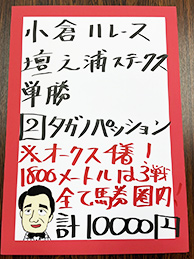 小倉11レース
壇之浦ステークス
単勝
2タガノパッション
※オークス4着!
1800メートルは3戦
全て馬券圏内!
計10000円